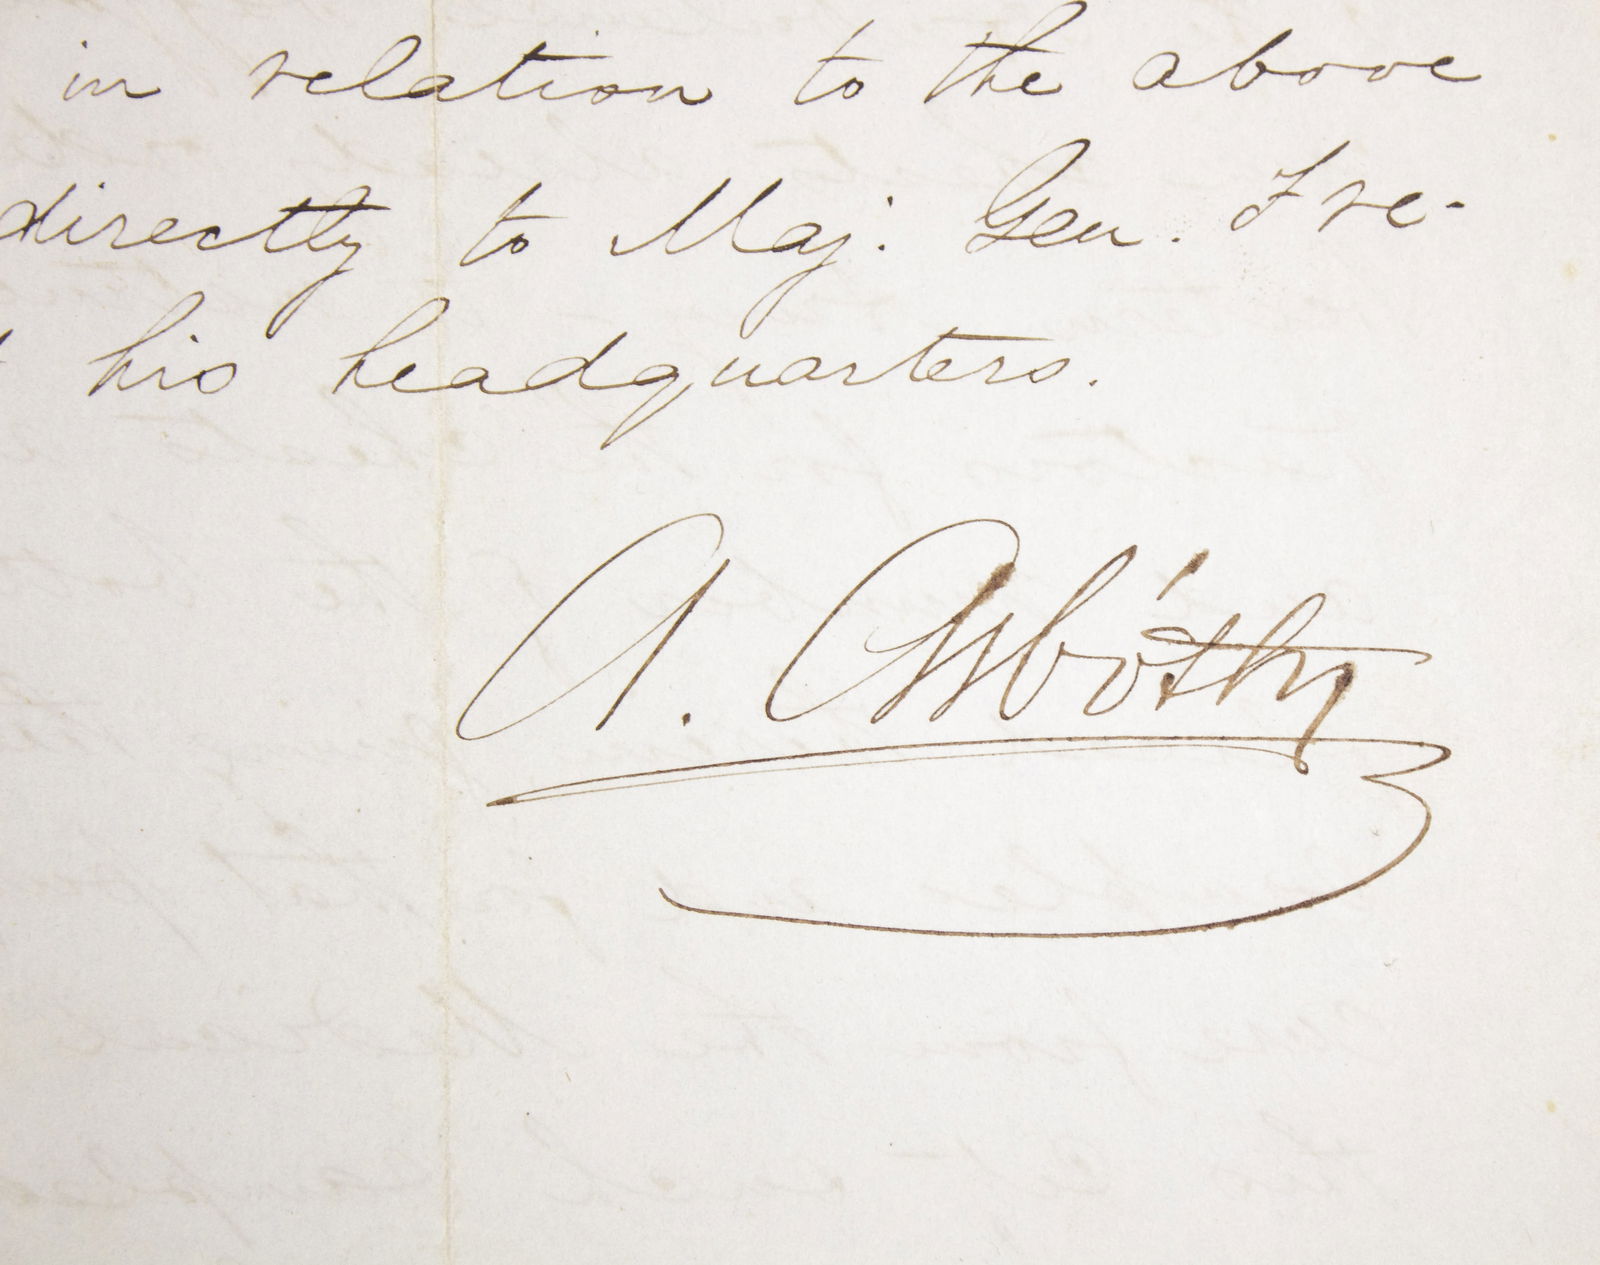 in relation to the above
directly to Maj: Gen. Fre-
his headquarters.
A. Asbóth